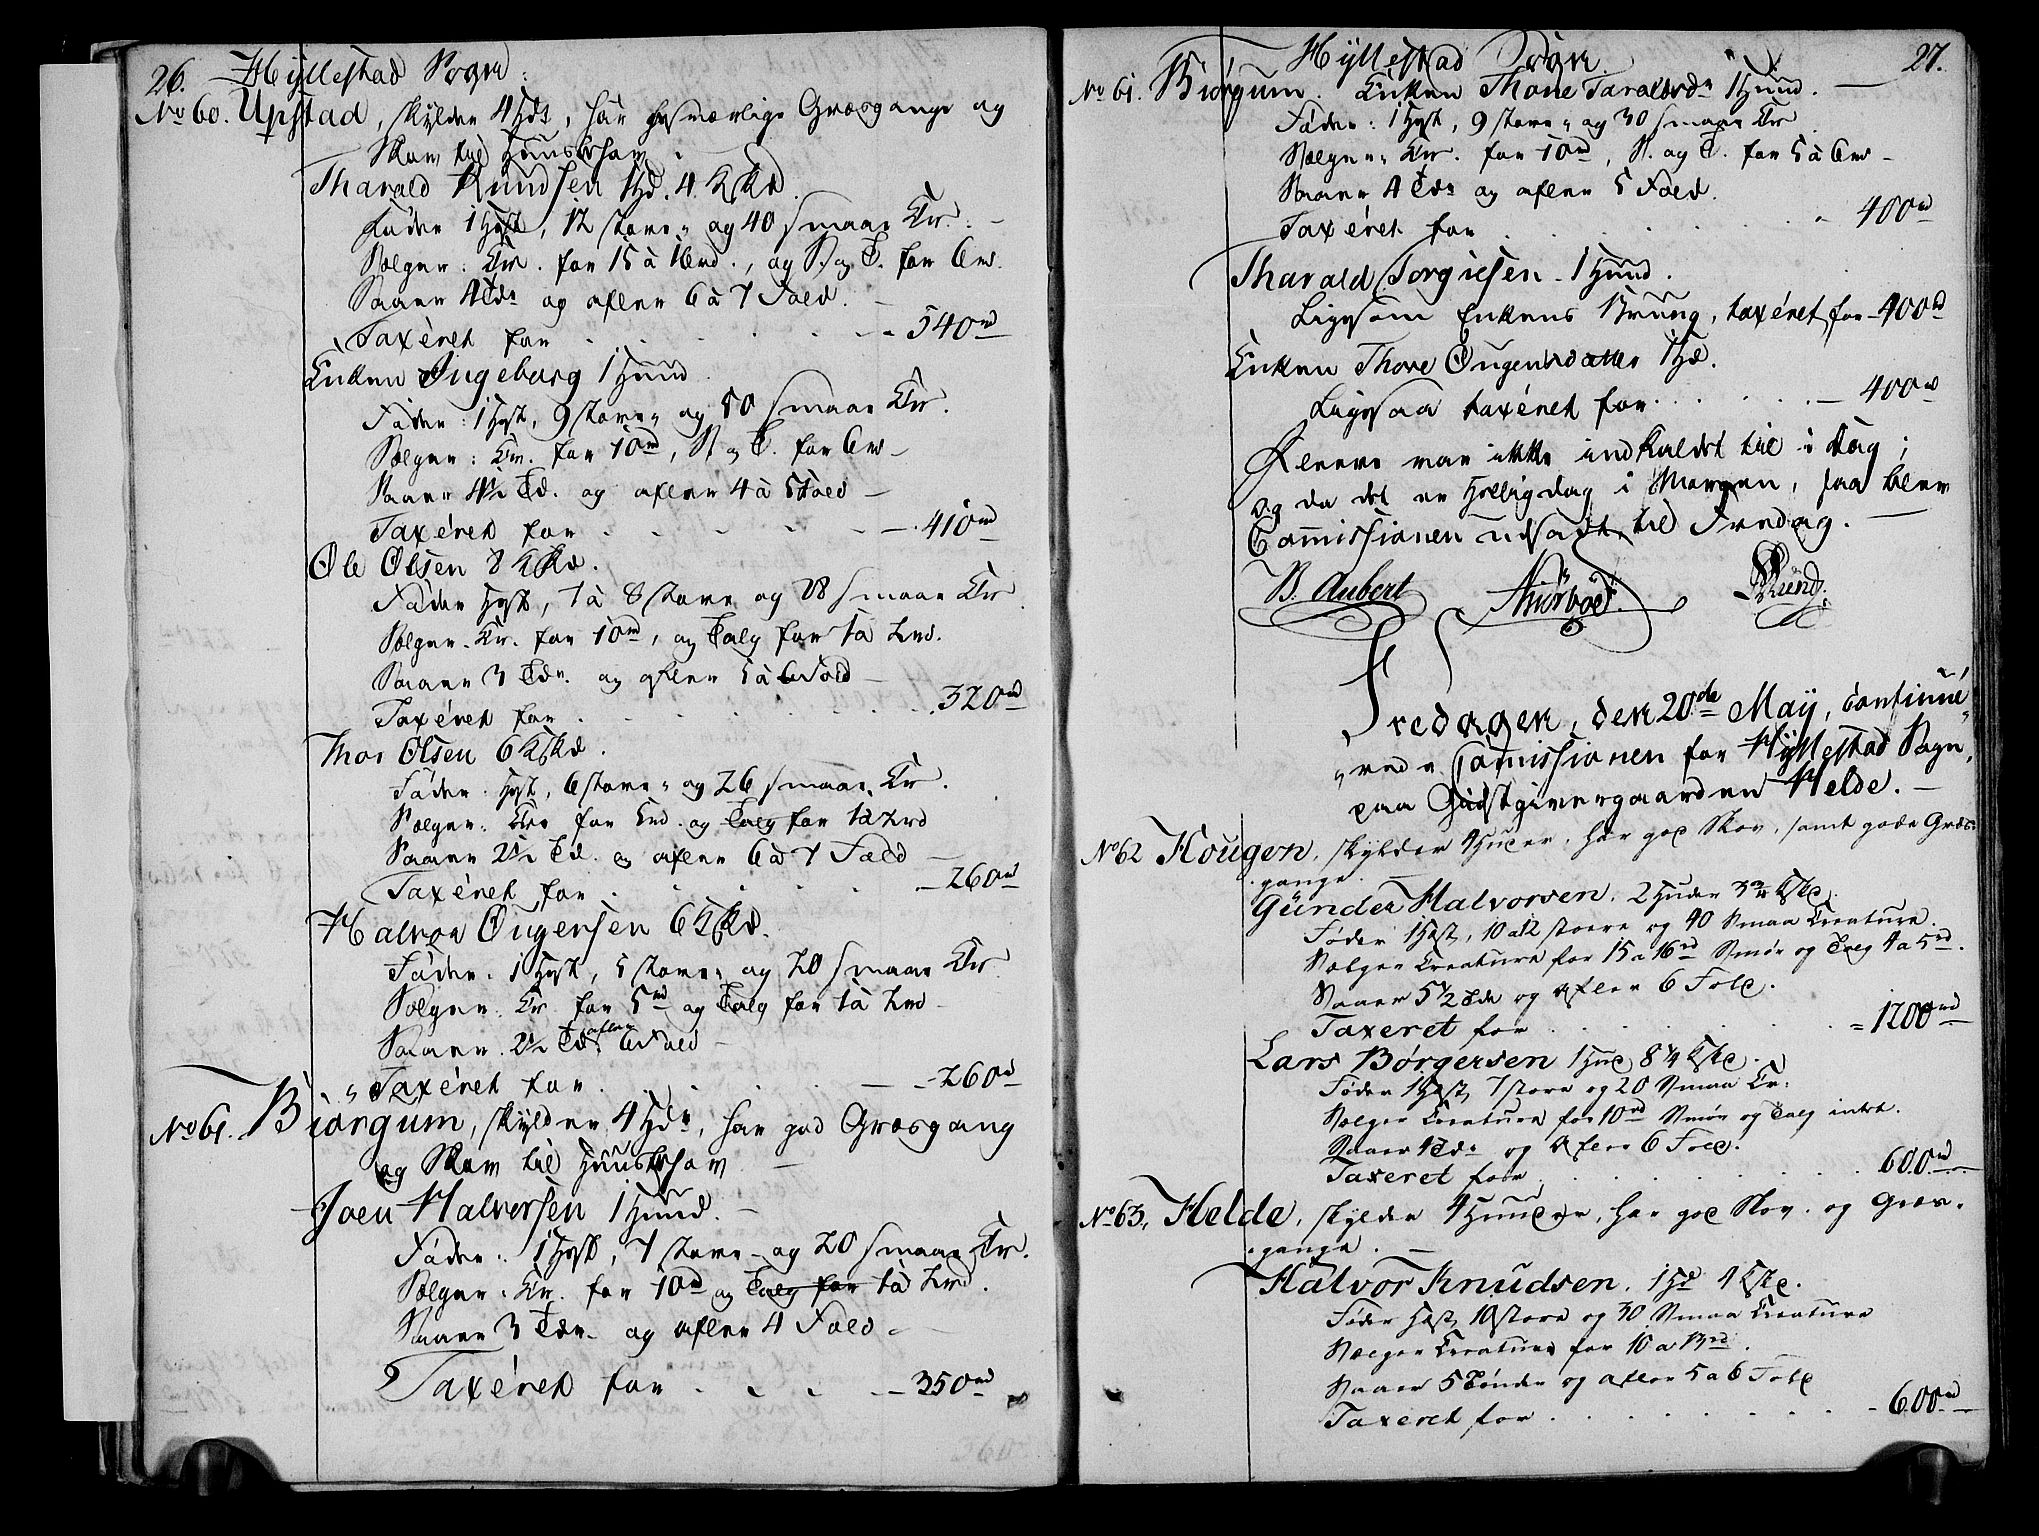 26. Hyllestad Sogn.
No 60. Upstad, skylder 4 Hdr, har besværlige Græsgange og
Skov til Huusbehov
Tharald Knudsen 1 Hd. 4 Kskd.
Føder 1 Hest, 12 store- og 40 smaae Cr. -
Sælger: Cr. for 15 à 16rd., og S. og T. for 6rd.
Saaer 4 Tdr og avler 6 à 7 Fold. -
Taxéret for . . . . . - 540rd
Enken Ingeborg 1 Huud
Føder: 1 Hest, 9 store- og 50 smaae Cr.
Sælger: Cr. for 10rd, S og T. for 6rd -
Saaer 4½ Td. og avler 4 à 5 Fold -
Taxéret for . . . . . - 410rd
Ole Olsen 8 Kskd.
Føder Hest, 7 à 8 store og 28 smaae Cr
Sælger. Cr. for 10rd, og Talg for 1 à 2rd.
Saaer 3 Tdr. og avler 5 à 6 Fold -
Taxéret for . . . . . 320rd
Thor Olsen 6 Kskd.
Føder. Hest, 6 store- og 26 smaae Cr.
Sælger: Cr for 5rd. og Talg for 1 à 2rd
Saaer 2½ Td. og avler 6 à 7 Fold -
Taxéret for . . . . . - 260rd
Halvor Ougensen 6 Kskd.
Føder. 1 Hest, 5 store- og 20 smaae Cr
Sælger. Cr for 5rd og Talg for 1 à 2rd -
Saaer. 2½ Td. avler 6 Fold -
Taxéret for . . . . - 260rd
No 61. Biørgum, skylder 4 Hdr, har god Græsgang
og Skov til Huusbehov -
Joen Halvorsen 1 Huud. -
Føder: 1 Hest, 7 store- og 20 smaae Cr.
Sælger. Cr. for 10rd og Talg for 1 à 2rd.
Saaer 3 Tdr. og avler 4 Fold -
Taxéret for . . . . - 350rd
Hyllestad Sogn. 27.
No 61. Biørgum. Enken Thone Taraldsdr 1 Huud. -
Føder: 1 Hest, 9 store- og 30 smaae Cr
Sælger: Cr. for 10rd, S. og T. for 5 à 6rd -
Saaer 4 Tdr og avler 5 Fold.
Taxéret for . . . . . - 400rd
Tharald Torgiusen - 1 Huud.
Ligesom Enkens Brug, taxéret for - 400rd
Enken Thore Ougensdatter 1 Hd.
Ligesaa taxéret for . . . . . - 400rd
Fleere var ikke indkaldet til i Dag;
og da det er Helligdag i Morgen, saa blev
Comissionen udsadt til Fredag. -
B. Aubert
Fredagen, den 20de May, continue-
rede Comissionen for Hyllestad Sogn,
paa Giæstgivergaarden Helde. -
No 62 Hougen, skylder 4 Huder, har god Skov, samt gode Græs-
gange. -
Günder Halvorsen. 2 Huder 3¾ Kskd.
Føder 1 Hest, 10 a 12 store og 40 Smaa Creature.
Sælger Creature for 15 a 16rd Smør og Talg 4 a 5rd.
Saaer 5½ Tdr og avler 6 Fold.
Taxeret for . . . . . - 1200rd
Lars Børgersen 1 Hud 8¼ Kskd.
Føder 1 Hest, 7 store og 20 Smaa Cr.
Sælger Creature for 10rd Smør og Talg intet.
Saaer 4 Tdr og avler 6 Fold.
Taxeret for . . . . . 600rd
No 63. Helde, skylder 4 Huuder, har god Skov. og Græs-
gange. -
Halvor Knudsen. 1 Hd 4 Kskd.
Føder Hest, 10 store og 30 Smaa Creature
Sælger Creature for 10 a 12rd.
Saaer 5 Tønder og avler 5 a 6 Fold
Taxeret for . . . . . - 600rd